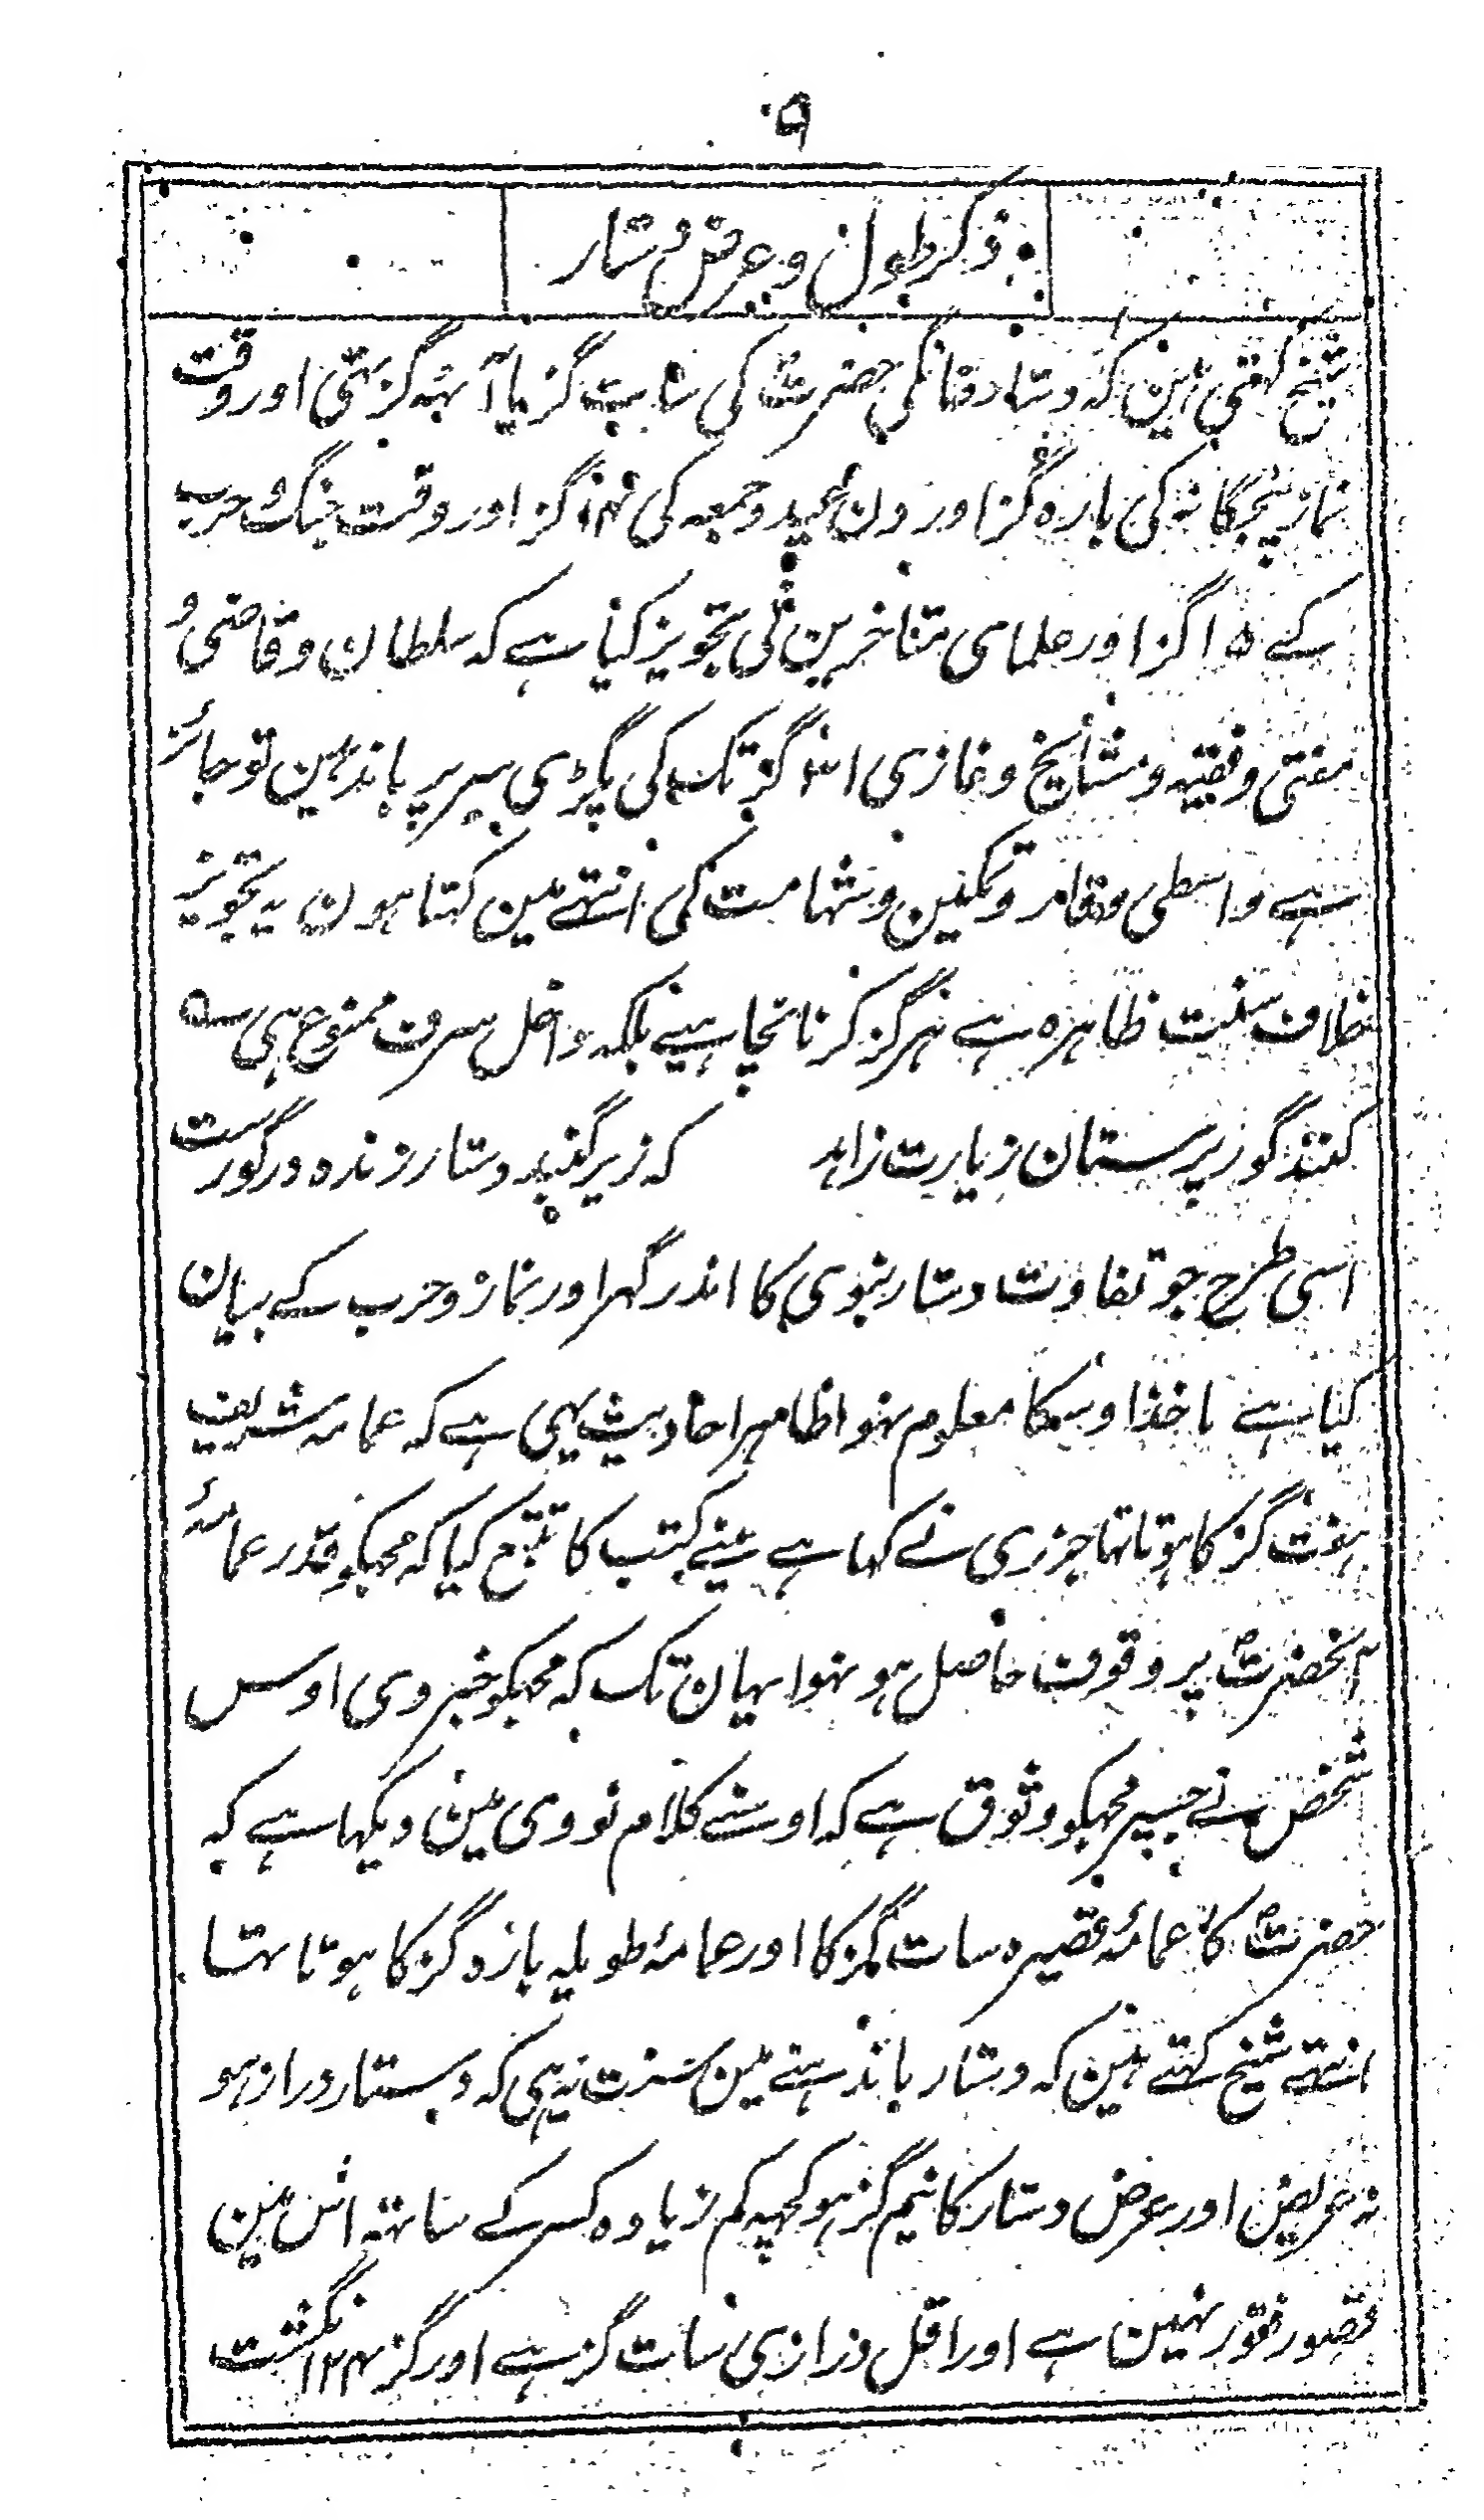 ۹
ذکر طول و عرض دستار
شیخ کہتی ہین کہ دستار خانگی حضرتؐ کی سات گز یا آٹہہ گز تہی اور وقت
نماز پنجگانہ کی بارہ گز اور دن عید و جمعہ کی ۱۴ گز اور وقت جنگ و حرب
کے ۱۵ گز اور علمای متاخرین نی تجویز کیا ہے کہ سلطان و قاضی و
مفتی و فقیہ و مشایخ و غازی ۳۱ گز تک کی پگڑی سر پر باندہین تو جائز
ہے واسطی وقار و تمکین و شہامت کی انتہے مین کہتا ہون یہ تجویز
خلاف سنت ظاہرہ ہے ہرگز کرنا نچاہیے بلکہ داخل سرف ممنوع ہی ؎
کنند گور پرستان زیارت زاہد کہ زیر گنبد دستار زندہ در گورست
اسی طرح جو تفاوت دستار نبوی کا اندر گہر اور نماز و حرب کے بیان
کیا ہے ماخذ اوسکا معلوم نہوا ظاہر احادیث یہی ہے کہ عمامہ شریف
ہفت گز کا ہوتا تہا جزری نے کہا ہے مینے کتب کا تتبع کیا کہ مجہکو قدر عمامۂ
آنحضرتؐ پر وقوف حاصل ہو نہوا یہان تک کہ مجہکو خبر دی اوس
شخص نے جسپر مجہکو وثوق ہے کہ اوسنے کلام نووی مین دیکہا ہے کہ
حضرتؐ کا عمامۂ قصیرہ سات گز کا اور عمامۂ طویلہ بارہ گز کا ہوتا تہا
انتہے شیخ کہتے ہین کہ دستار باندہنے مین سنت یہ ہی کہ دستار دراز ہو
نہ عریض اور عرض دستار کا نیم گز ہو کچہہ کم زیادہ کسر کے ساتہہ اس مین
قصور فتور نہین ہے اور اقل درازی سات گز ہے اور گز ۲۴ انگشت